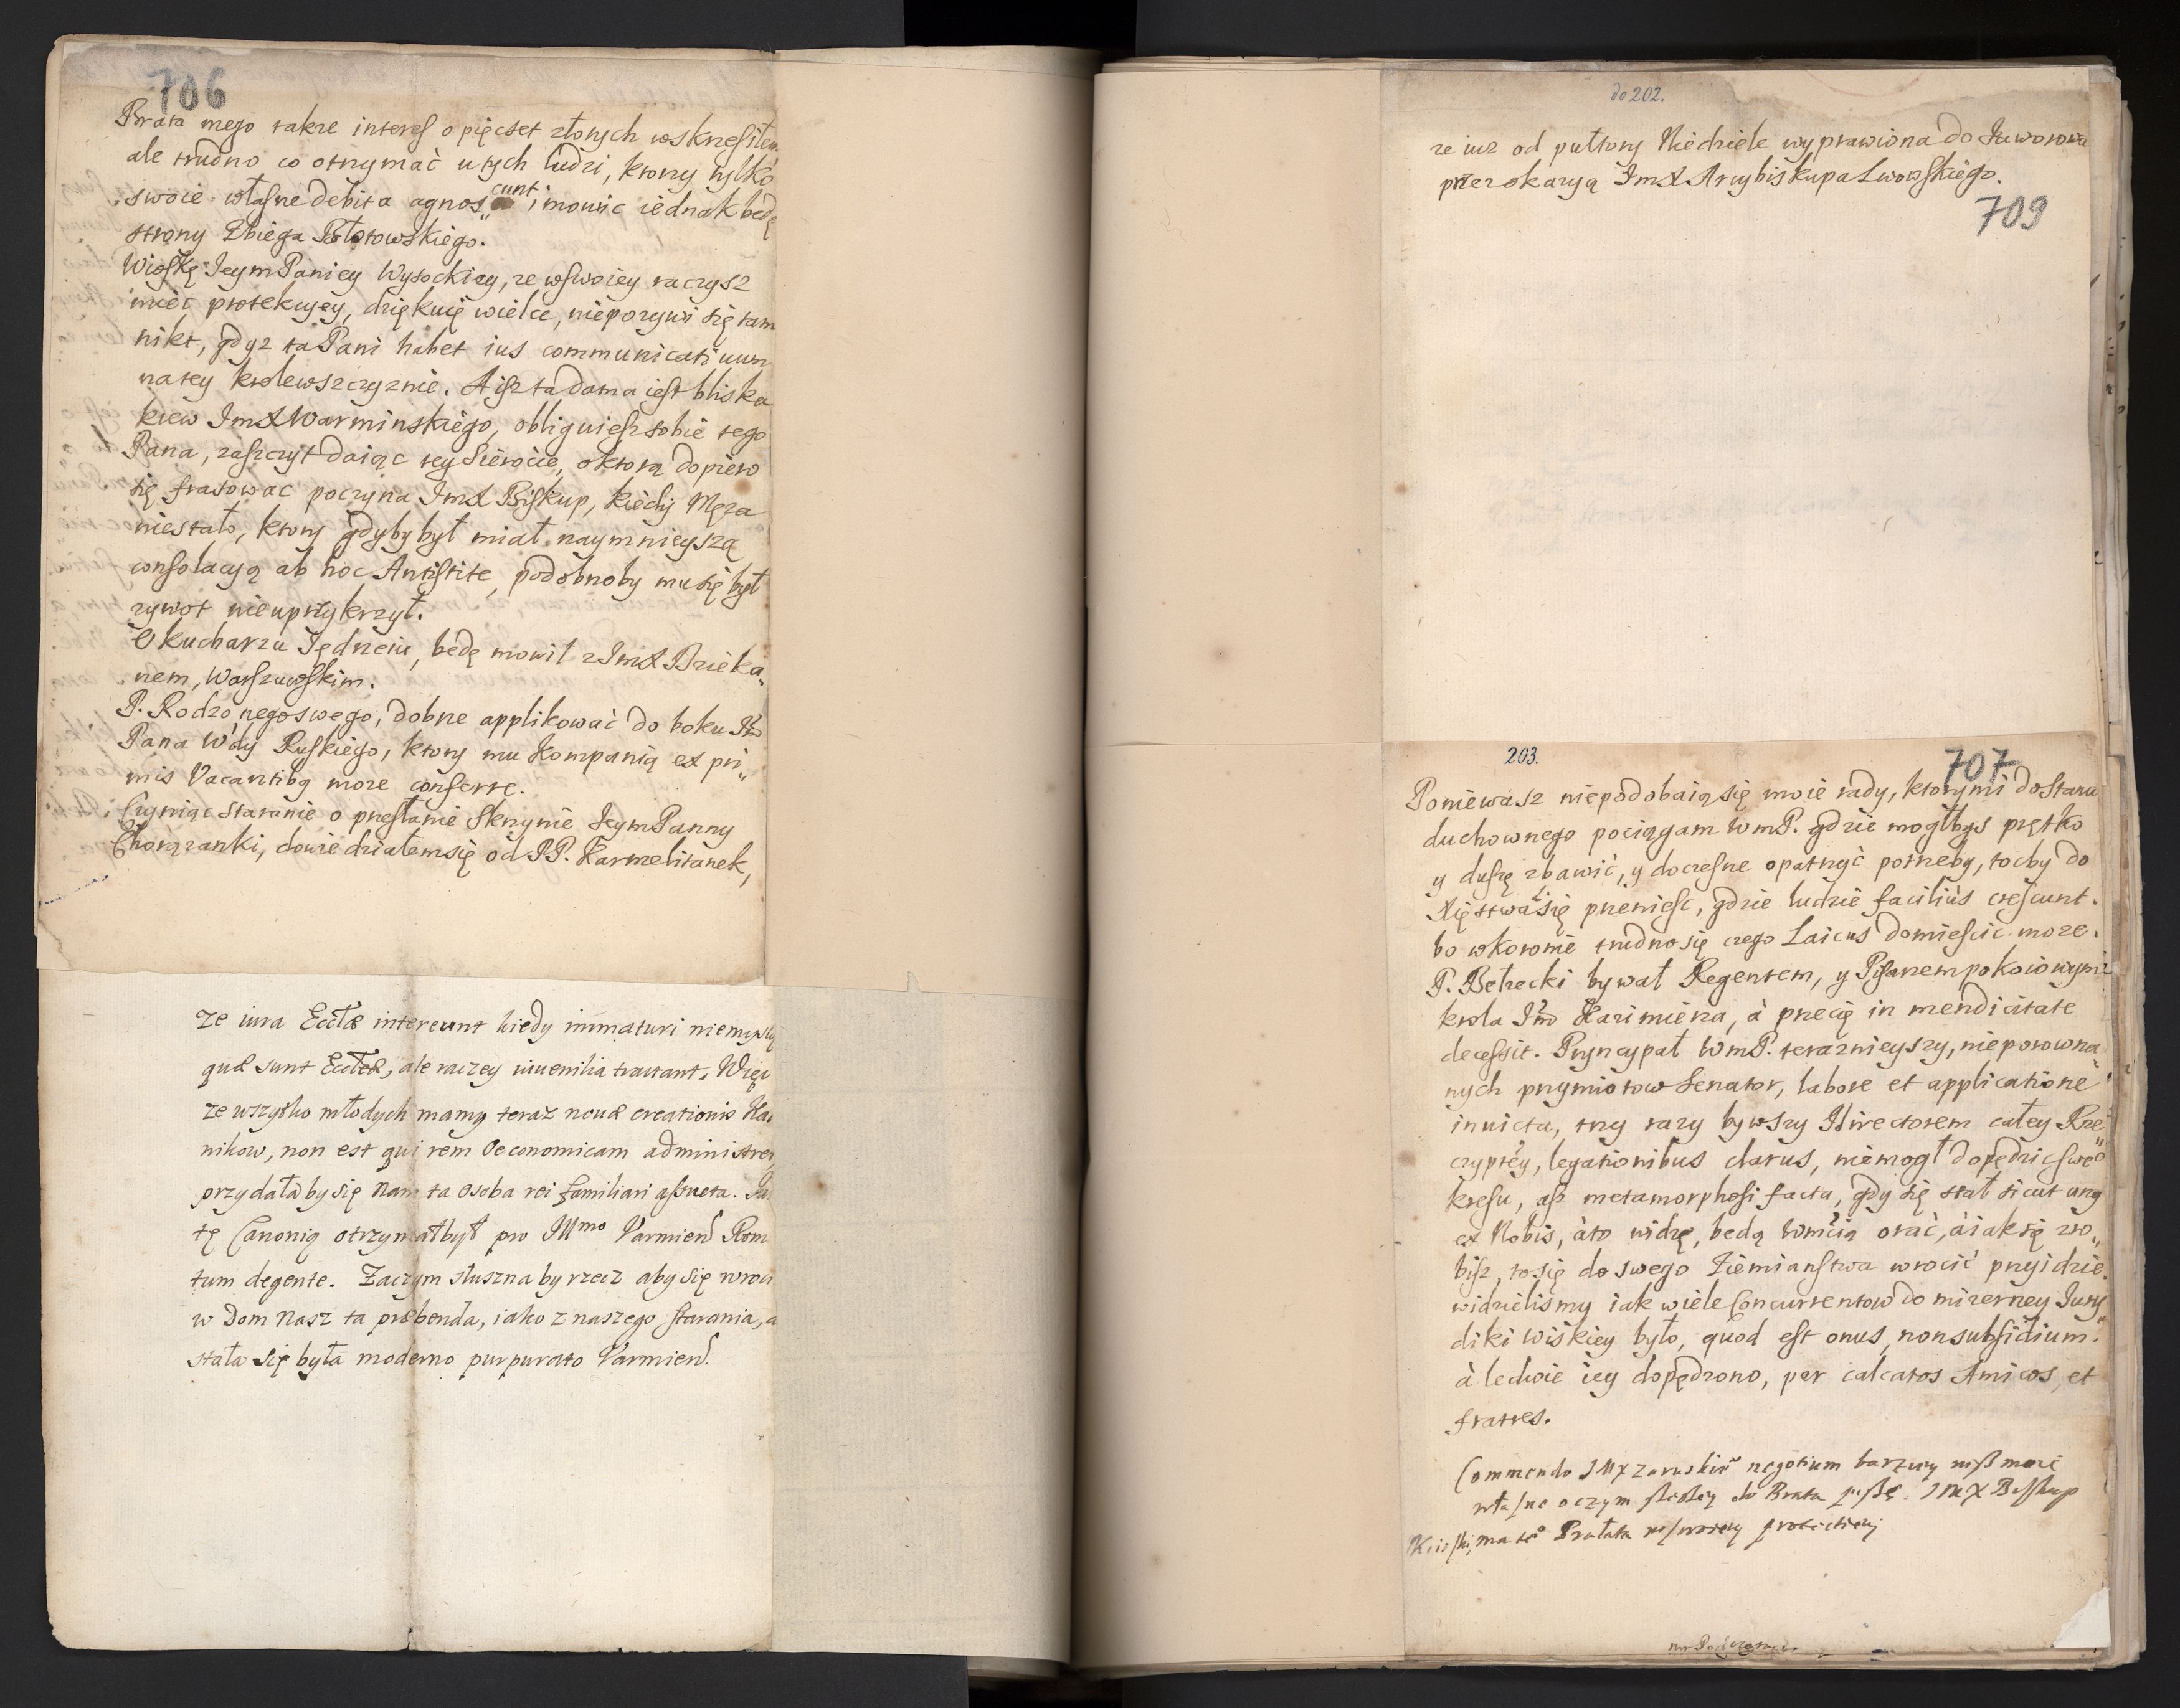 706
Brata mego takze interes o pięcset złotych wskrzesiłem
ale trudno co otrzymać u tych ludzi, ktorzy tylko
swoie własne debita agnos„cunt; mowic iednak będę
strony Zbiega Połotowskiego.
Wioskę Jeym Paniey Wysockiey, ze w swoiey raczysz
mieć protekcyey, dziękuię wielce, nieporywi się tam
nikt, gdyz ta Pani habet ius communicatiuum
na tey krolewszczyznie. A isz ta dama iest bliska
krew JmX Warminskiego, obliguiesz sobie tego
Pana, zaszczyt daiąc tey Sierocie, o ktorą dopiero
się frasowac poczyna JmX Biskup, kiedy Męza
niestało, ktory gdyby był miał naymnieyszą
consolacyą ab hoc Antistite, podobnoby mu się był
zywot nieuprzykrzył.
O kucharzu Jędrzeiu, będę mowił z JmX Dzieka„
nem, Warszawskim.
P. Rodzonego swego, dobrze applikować do boku Jmo
Pana Wdy Ruskiego, ktory mu Kompanią ex pri„
mis Vacantibq more conferre.
Czyniąc staranie o przesłanie Skrzynie JeymPanny
Chorązanki, dowiedziałem się od PP. Karmelitanek,
ze iura Ecclæ intereunt kiedy immaturi niemyslą
quæ sunt Ecclæ, ale raczey iuuenilia tractant. Więc
ze wszysko młodych mamy teraz nouæ creationis Ka
nikow, non est qui rem Oeconomicam administret
przydałaby się nam ta osoba rei familiari assueta.
tę Canonią otrzymał był pro Illmo Varmien Rom
tum degente. Zaczym słuszna by rzecz aby się wroci
w Dom nasz ta præbenda, iako z naszego starania,
stała się była moderno purpurato Varmien.
do 202.
ze iuz od pułtory Niedziele wyprawiona do Jaworowa
przez okazyą JmX Arcybiskupa Lwowskiego.
709
203.
707
Poniewasz niepodobaią się moie rady, ktorymi do stanu
duchownego pociągam WmP. gdzie mogłbys prętko
y duszę zbawić, y doczesne opatrzyć potrzeby, tocby do
Xięstwa się przeniesc, gdzie ludzie facilius crescunt.
bo w koronie trudno się czego Laicus domiescic moze.
P. Bełzecki bywał Regentem, y Pisarzem pokoiowym
krola Jmo Kazimierza, à przecię in mendicitate
decessit. Pryncypał WmP. teraznieyszy, nieporowna„
nych przymiotow Senator, labore et applicatione
inuicta, trzy razy bywszy Directorem całey Rze„
czyptey, legationibus clarus, niemogł dopędzic sweo
kresu, asz metamorphosi facta, gdy się stał sicut unq
ex Nobis, àto widzę, bedą Wmcią orać, à iak się zro„
bisz, to się do swego Ziemianstwa wrocić przyidzie.
widzielismy iak wiele Concurrentow do mizerney Jury„
diki Wiskiey było, quod est onus, non subsidium.
à ledwie iey dopędzono, per calcatos Amicos, et
fratres.
Commendo JMX Zaruskio negotium barziey nisz moie
własne o czym do Brata piszę. JMX Biskup
Kiiowski, ma te Prałata w swoiey protectiey